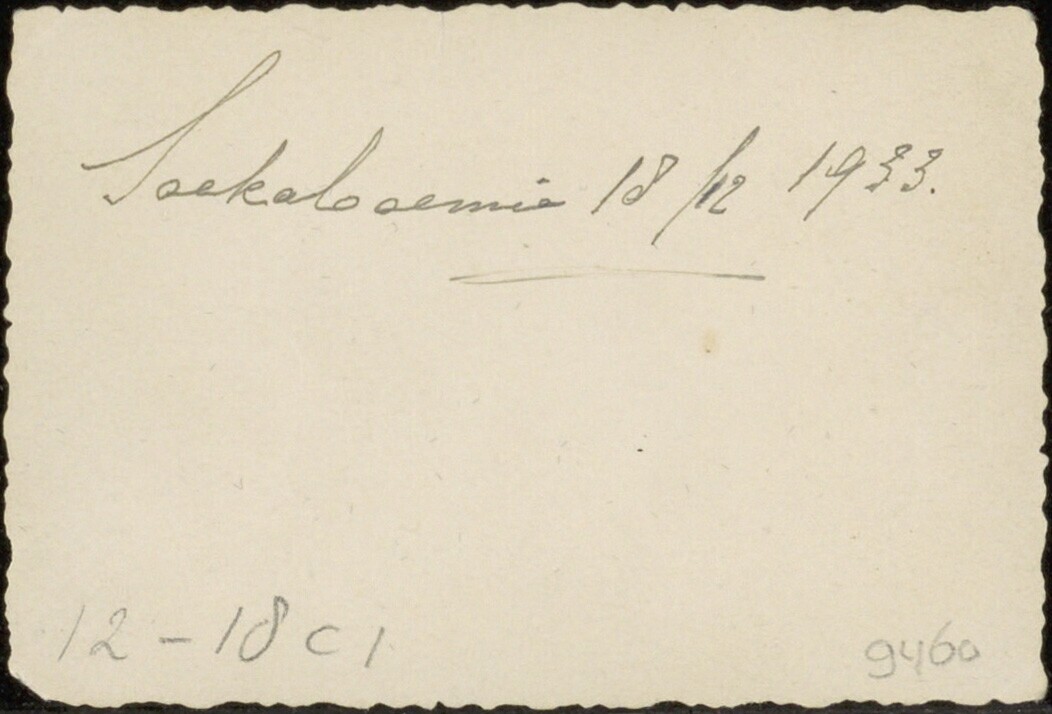 Soekaboemie 18/12 1933.
12 - 18 C 1
9460